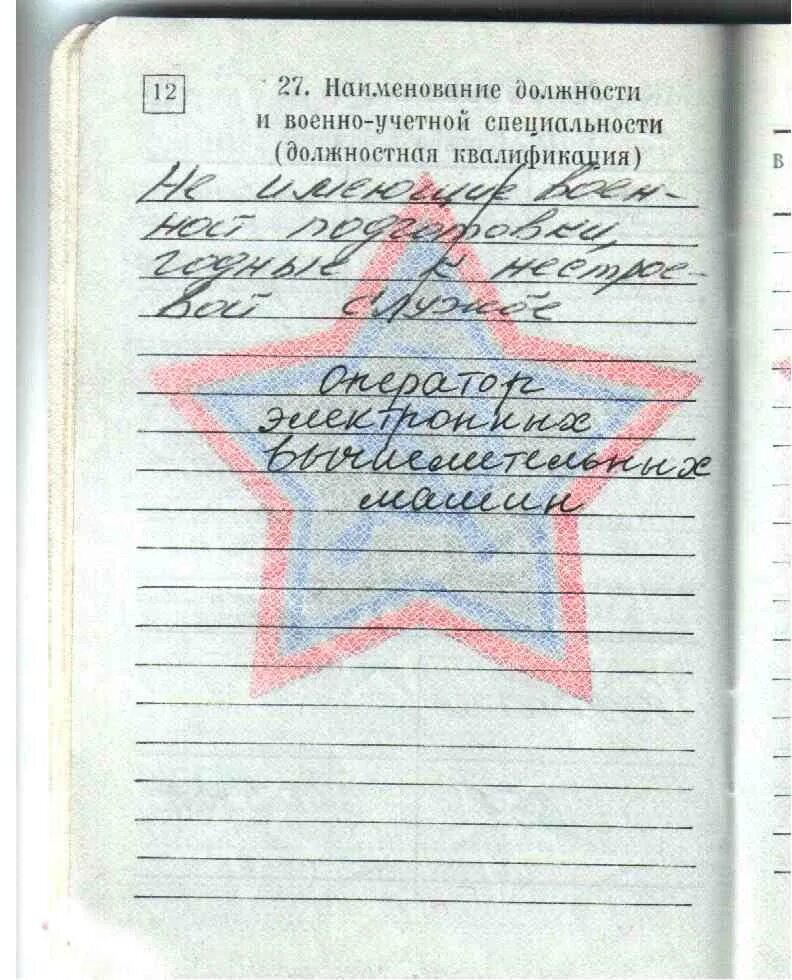 12
27. Наименование должности
и военно-учетной специальности
(должностная квалификация)
Не имеющие воен-
ной подготовки,
годные к нестрое-
вой службе
Оператор
электронных
вычислительных
машин
В